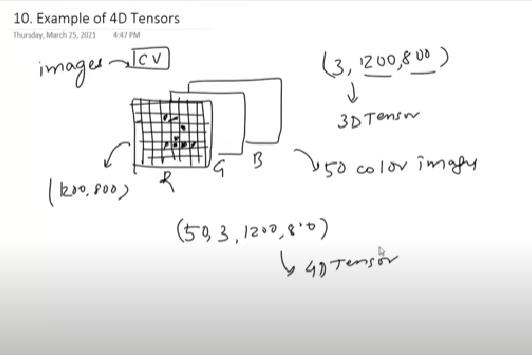 10. Example of 4D Tensors
Thursday, March 25, 2021 4:47 PM
images CV
(3, 1200, 800)
3D Tensor
R G B
(1200, 800)
50 color images
(50, 3, 1200, 800)
4D Tensor